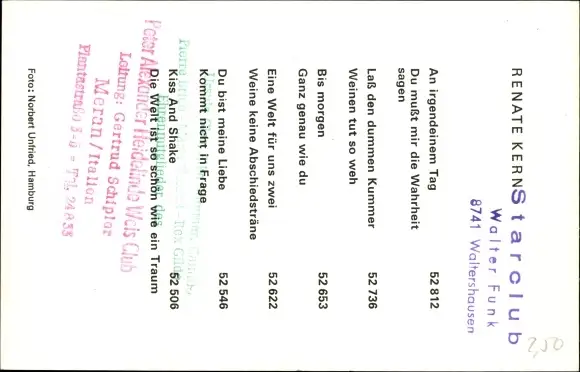 RENATE KERN
Starclub
Walter Funk
8741 Waltershausen
An irgendeinem Tag 52 812
Du mußt mir die Wahrheit
sagen
Laß den dummen Kummer 52 736
Weinen tut so weh
Bis morgen 52 653
Ganz genau wie du
Eine Welt für uns zwei 52 622
Weine keine Abschiedsträne
Du bist meine Liebe 52 546
Kommt nicht in Frage
Kiss And Shake 52 506
Die Welt ist so schön wie ein Traum
Ehrenmitglieder des
Peter Alexander Heidelinde Weis Club
Leitung: Gertrud Schipler
Meran/Italien
Plantastraße
Foto: Norbert Unfried, Hamburg
2,50